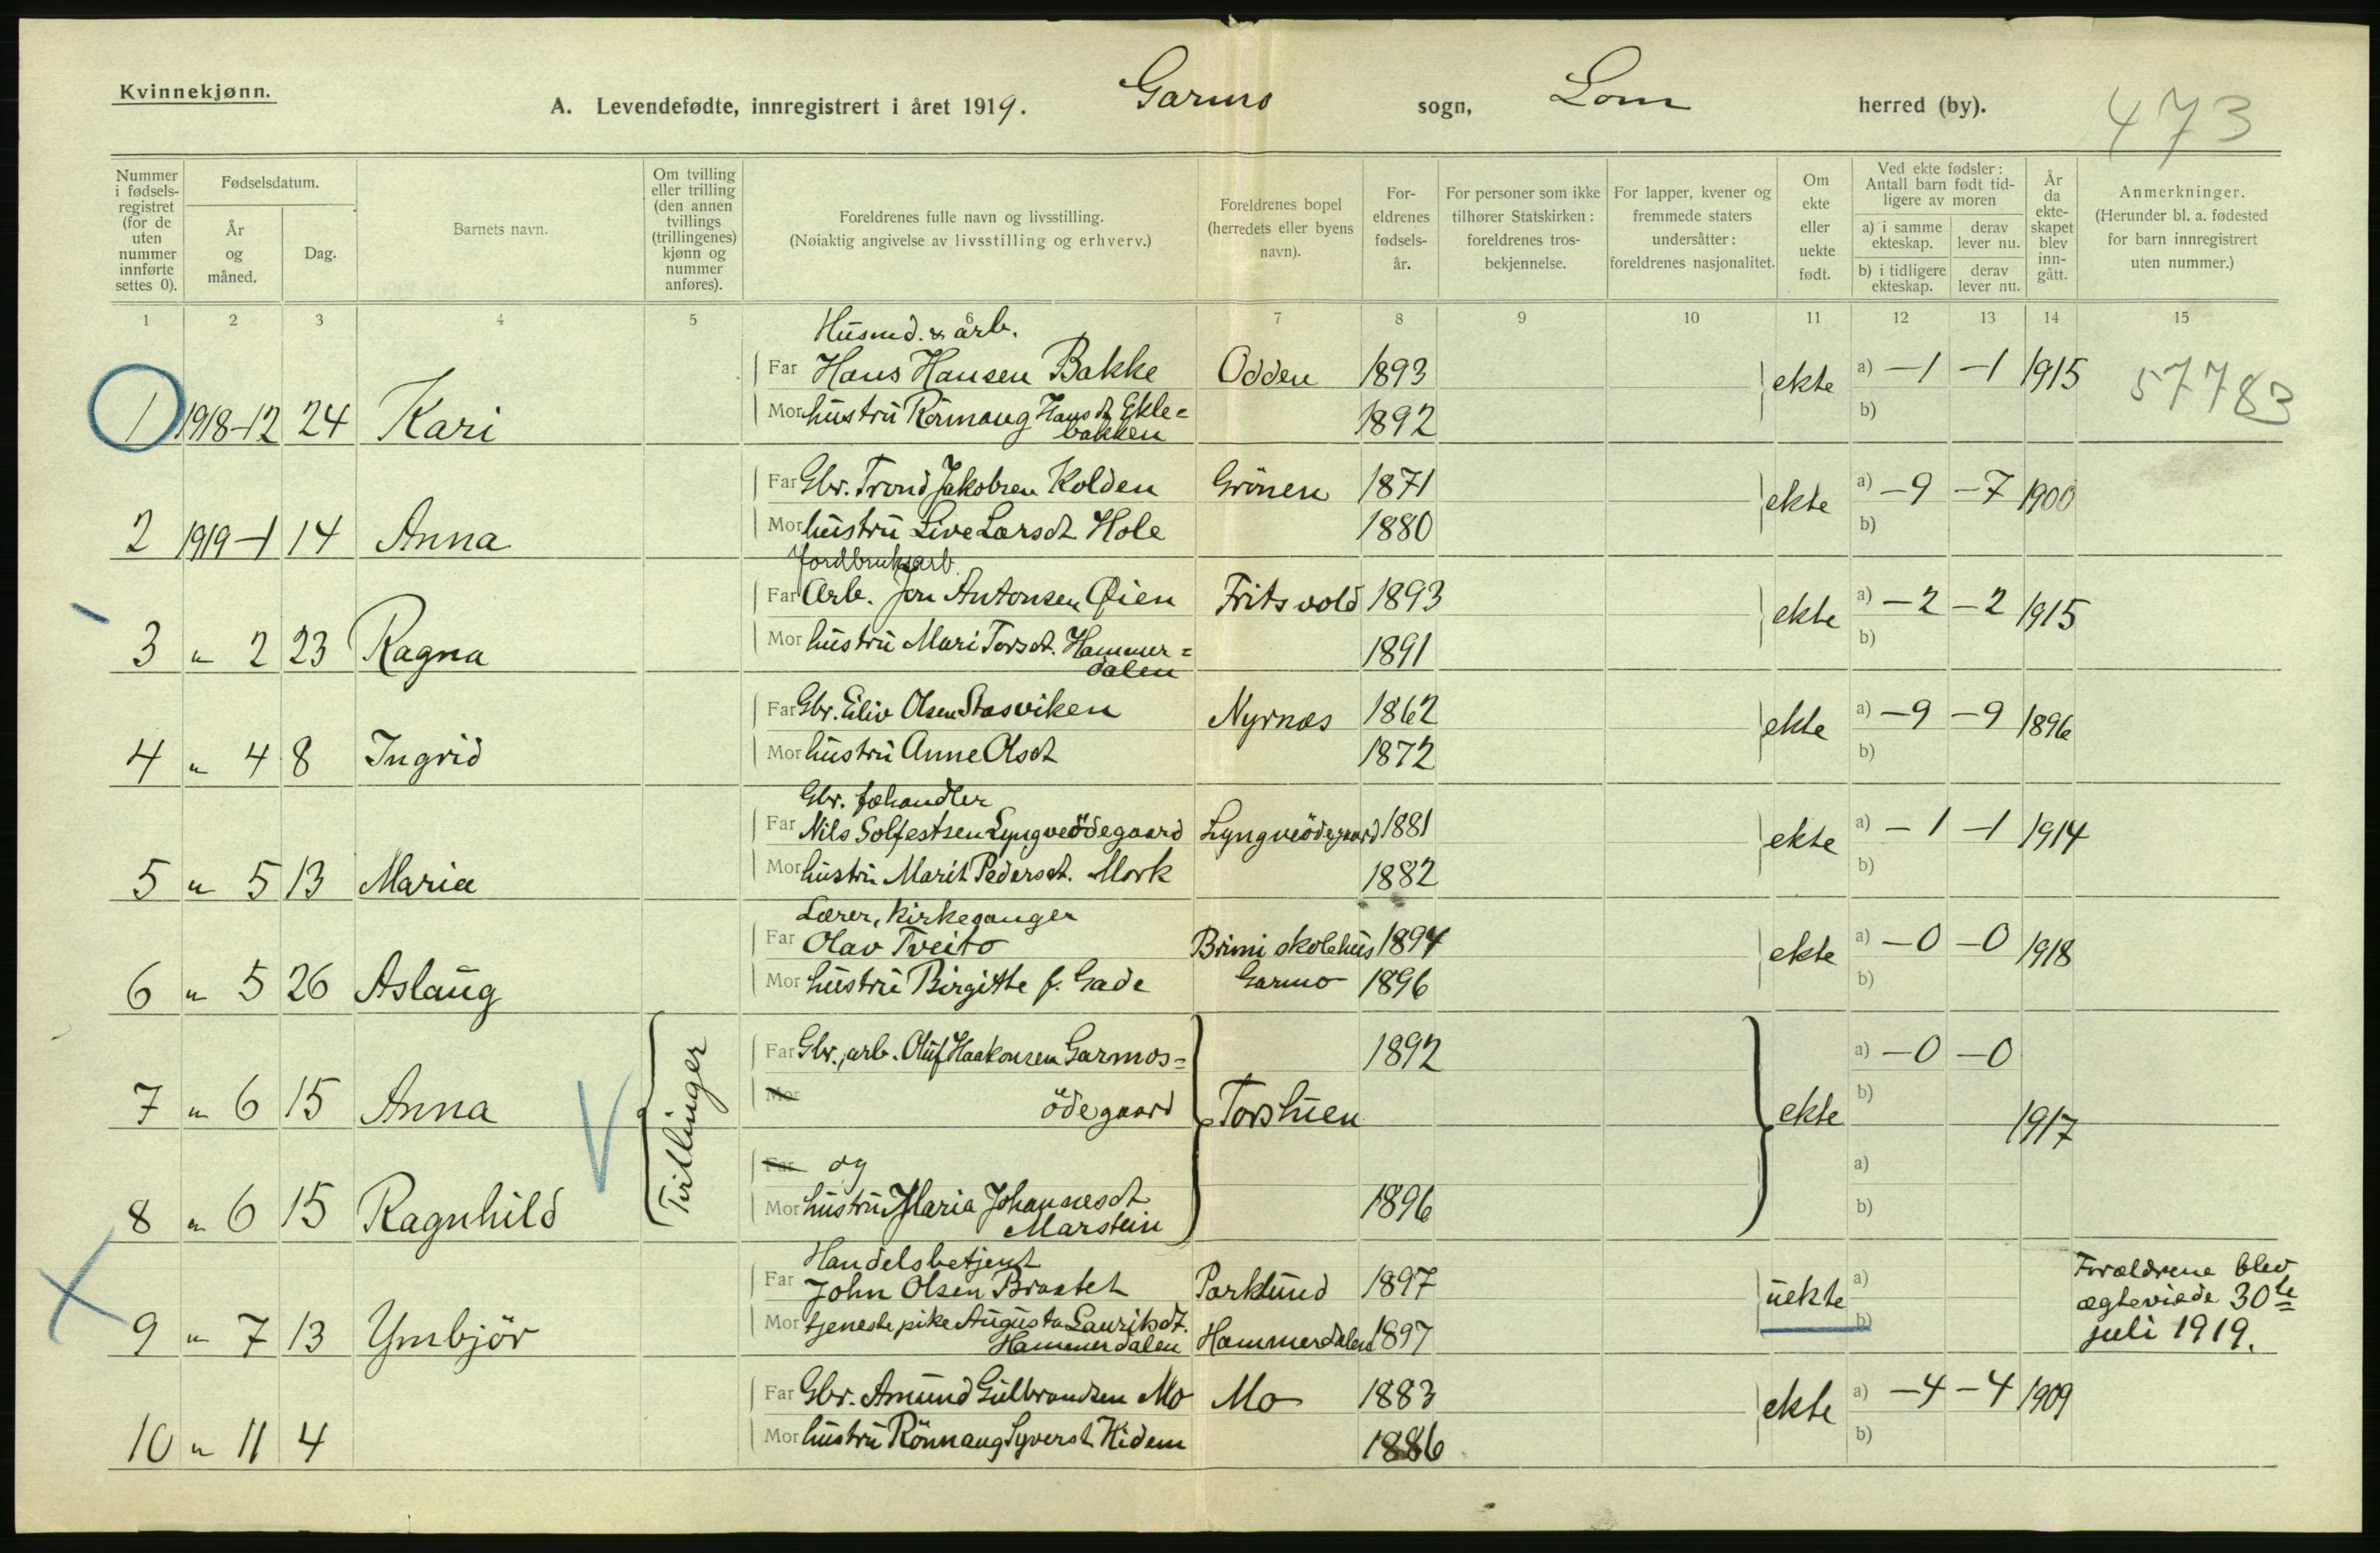 Kvinnekjønn.
A. Levendefødte, innregistrert i året 1919. Garmo sogn, Lom herred (by).
473
Nummer i fødsels-registret (for de uten nummer innførte settes 0).
Fødselsdatum.
År og måned.
Dag.
Barnets navn.
Om tvilling eller trilling (den annen tvillings (trillingenes) kjønn og nummer anføres).
Foreldrenes fulle navn og livsstilling.
(Nøiaktig angivelse av livsstilling og erhverv.)
Foreldrenes bopel (herredets eller byens navn).
For-eldrenes fødsels-år.
For personer som ikke tilhører Statskirken: foreldrenes tros-bekjennelse.
For lapper, kvener og fremmede staters undersåtter: foreldrenes nasjonalitet.
Om ekte eller uekte født.
Ved ekte fødsler: Antall barn født tid-ligere av moren
a) i samme ekteskap.
derav lever nu.
b) i tidligere ekteskap.
derav lever nu.
År da ekte-skapet blev inn-gått.
Anmerkninger.
(Herunder bl. a. fødested for barn innregistrert uten nummer.)
1 2 3 4 5 6 7 8 9 10 11 12 13 14 15
Husmd. & arb.
Far Hans Hansen Bakke Odden 1893 ekte a) -1 -1 1915 57783
1 1918-12 24 Kari Mor hustru Rönnaug Hansdt Ekle= 1892 b)
bakken
Far Gbr. Trond Jakobsen Kolden Grönen 1871 ekte a) -9 -7 1900
2 1919-1 14 Anna Mor hustru Live Larsdt Hole 1880 b)
Jordbruksarb.
Far Arb. Jon Antonsen Øien Fritsvold 1893 ekte a) -2 -2 1915
3 " 2 23 Ragna Mor hustru Mari Torsdt. Hammer= 1891 b)
dalen
Far Gbr. Eiliv Olsen Stasviken Nyrnæs 1862 ekte a) -9 -9 1896
4 " 4 8 Ingrid Mor hustru Anne Olsdt 1872 b)
Gbr. fæhandler
Far Nils Solfestsen Lyngveödegaard Lyngveödegaard 1881 ekte a) -1 -1 1914
5 " 5 13 Maria Mor hustru Marit Pedersdt. Mork 1882 b)
Lærer, kirkesanger
Far Olav Tveito Brimi skolehus 1894 ekte a) -0 -0 1918
6 " 5 26 Aslaug Mor hustru Birgitte f. Gade Garmo 1896 b)
Far Gbr., arb. Oluf Haakonsen Garmos= 1892 a) -0 -0
7 " 6 15 Anna Tvillinger Mor ödegaard Torshuen ekte b) 1917
Far og a)
8 " 6 15 Ragnhild Mor hustru Maria Johannesdt 1896 b)
Marstein
Handelsbetjent
Far John Olsen Braatet Parklund 1897 uekte a) Forældrene blev
ægteviede 30te
9 " 7 13 Ymbjör Mor tjenestepike Augusta Lauritsdt. Hammerdalen 1897 b) juli 1919.
Hammerdalen
Far Gbr. Amund Gulbrandsen Mo Mo 1883 ekte a) -4 -4 1909
10 " 11 4 Mor hustru Rönnaug Syverst. Kidem 1886 b)